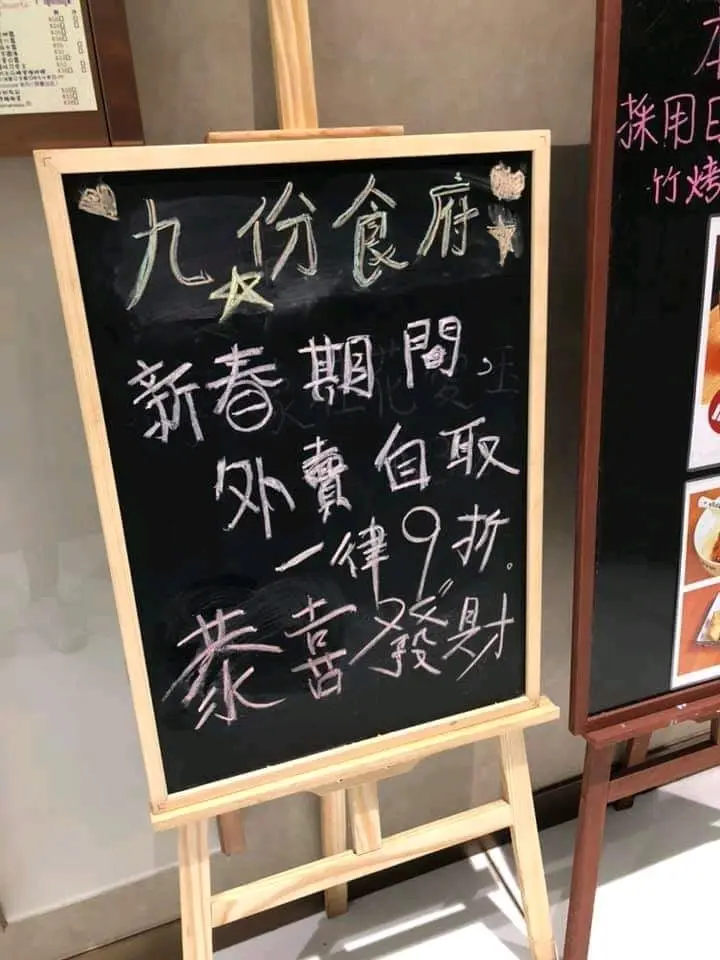 九份食府
新春期間,
外賣自取
一律9折。
恭喜發財
採用日
竹烤